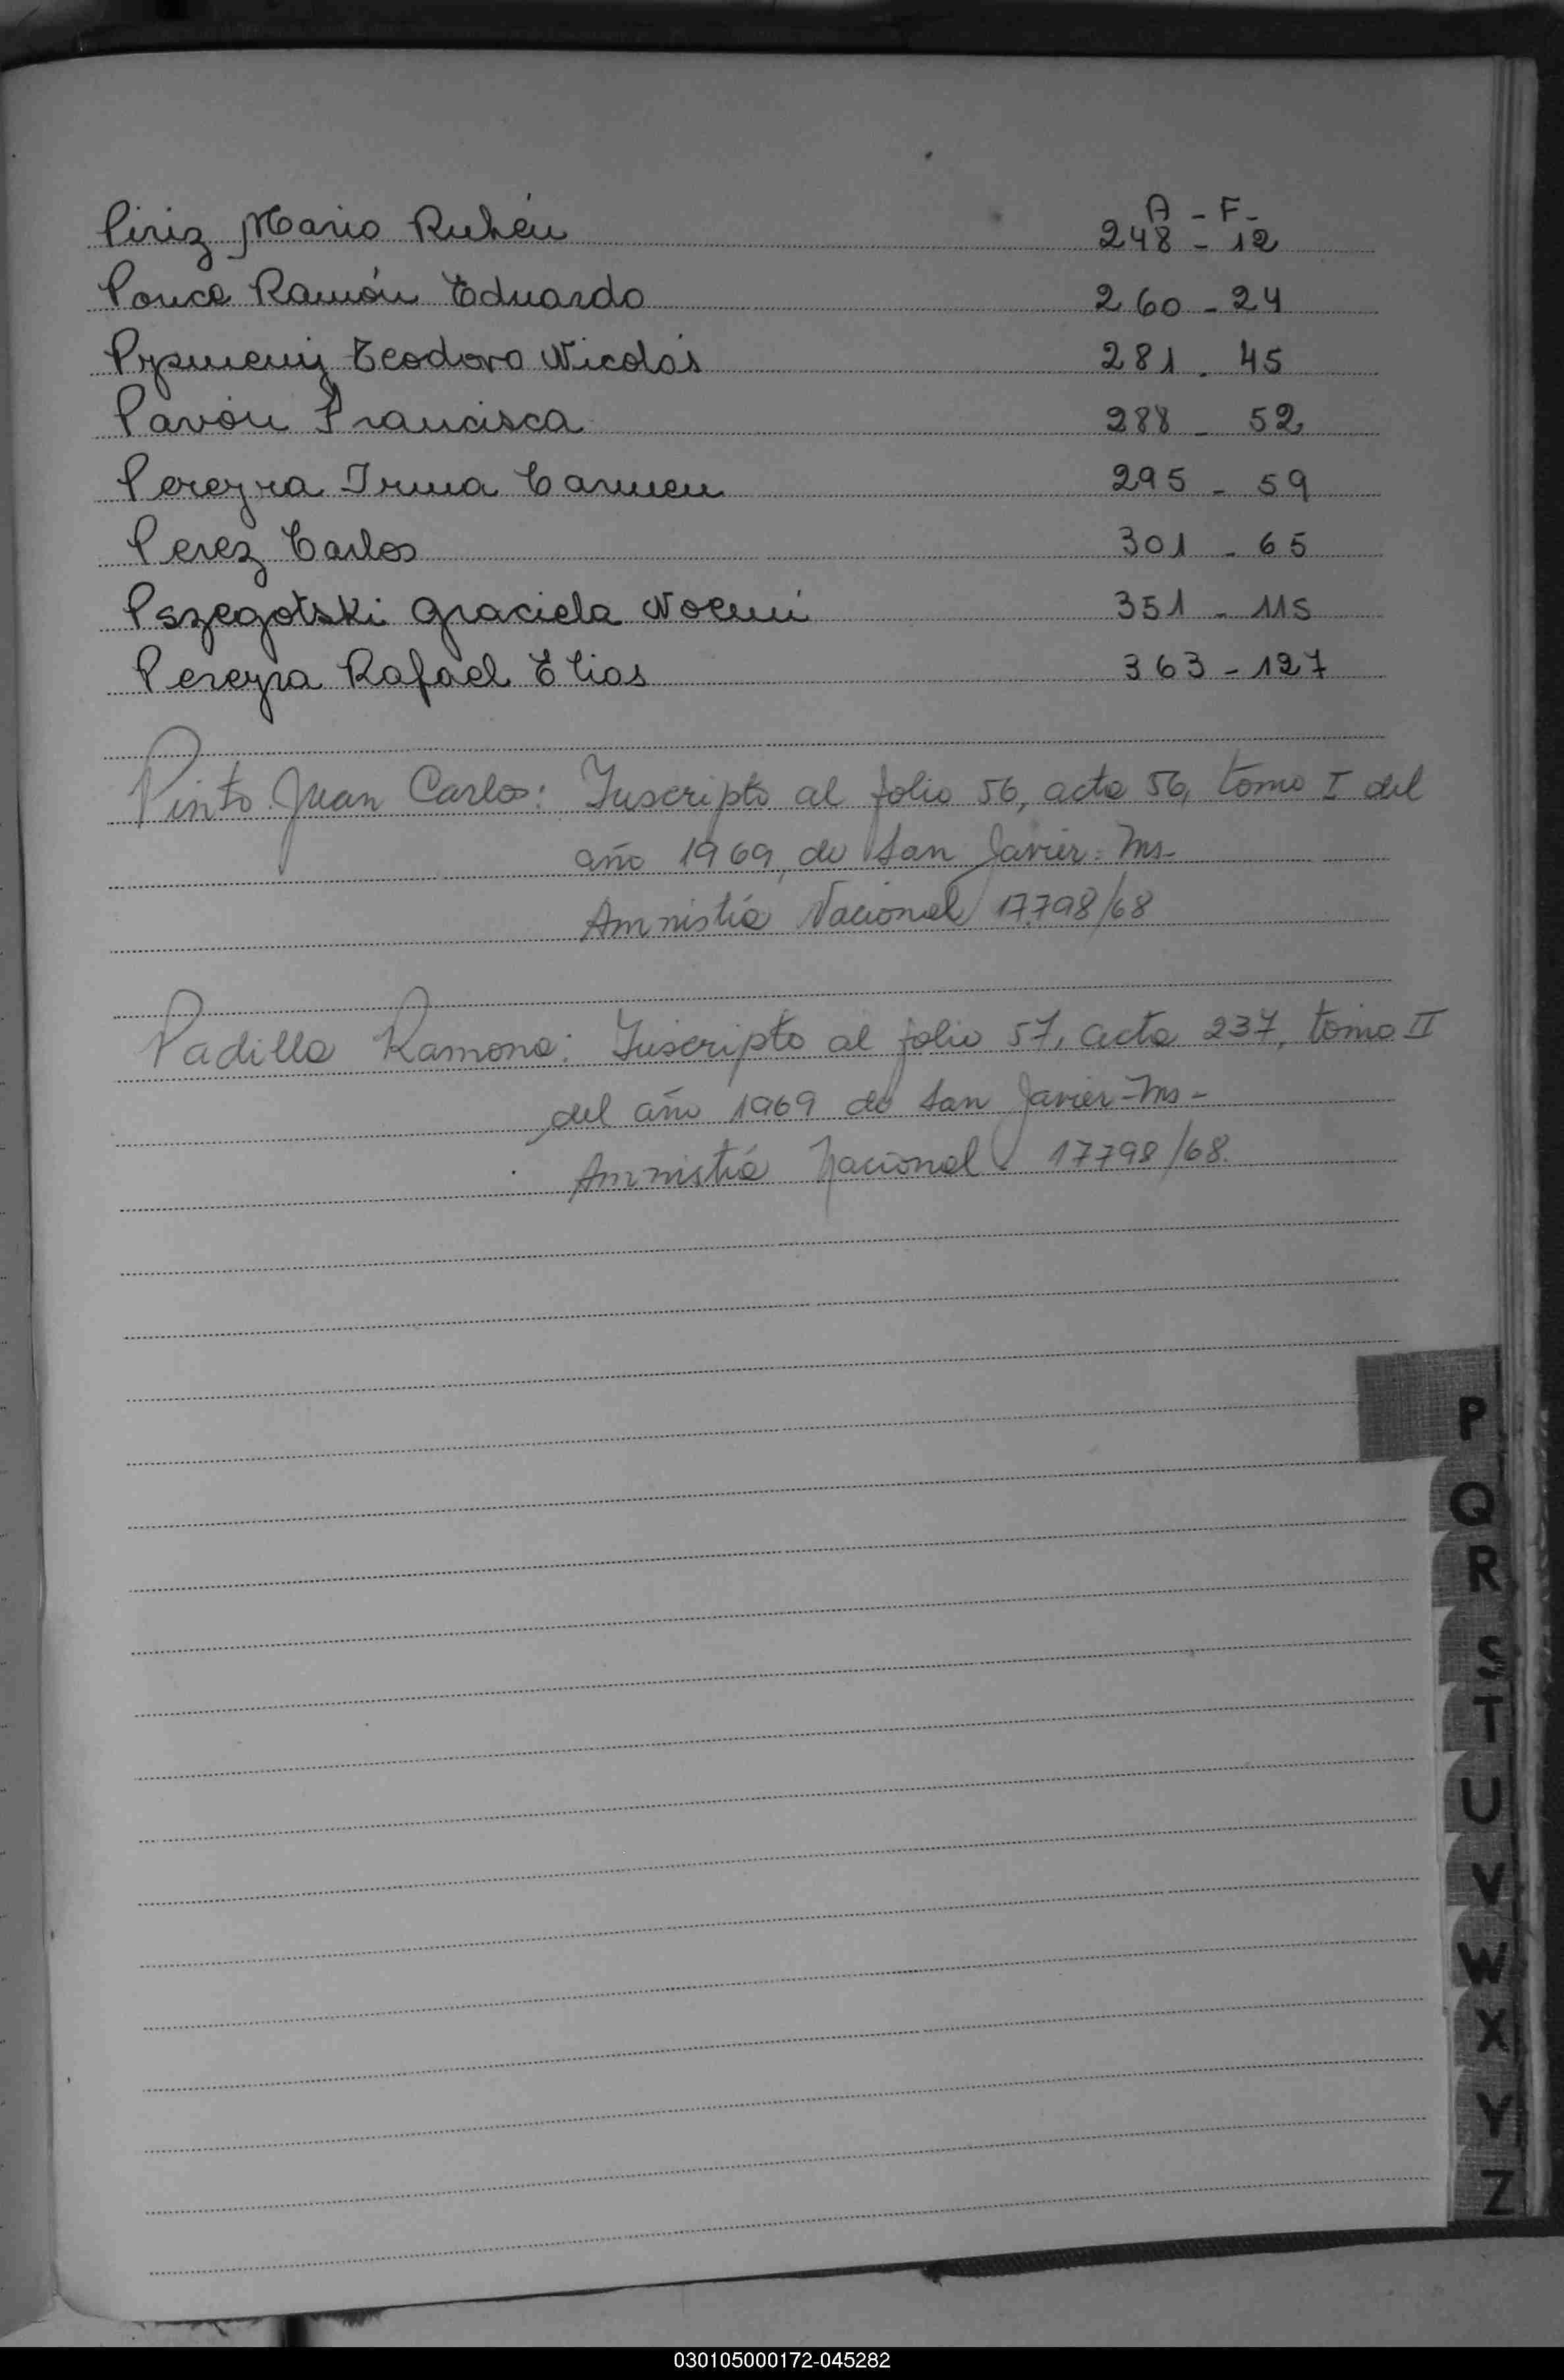 A - F-
Piriz Mario Rubén 248 - 12
Ponce Ramón Eduardo 260 - 24
Teodoro Nicolás 281 - 45
Pavón Francisca 288 - 52
Pereyra Irma Carmen 295 - 59
Perez Carlos 301 - 65
Pszegotski Graciela Noemi 351 - 115
Pereyra Rafael Elias 363 - 127
Pinto Juan Carlos: Inscripto al folio 56, acta 56, tomo I del
año 1969, de San Javier - Ms-
Amnistía Nacional 17.798/68
Padilla Ramona: Inscripto al folio 57, acta 237, tomo II
del año 1969 de San Javier - Ms -
Amnistía Nacional 17798/68.
P
Q
R
S
T
U
V
W
X
Y
Z
030105000172-045282